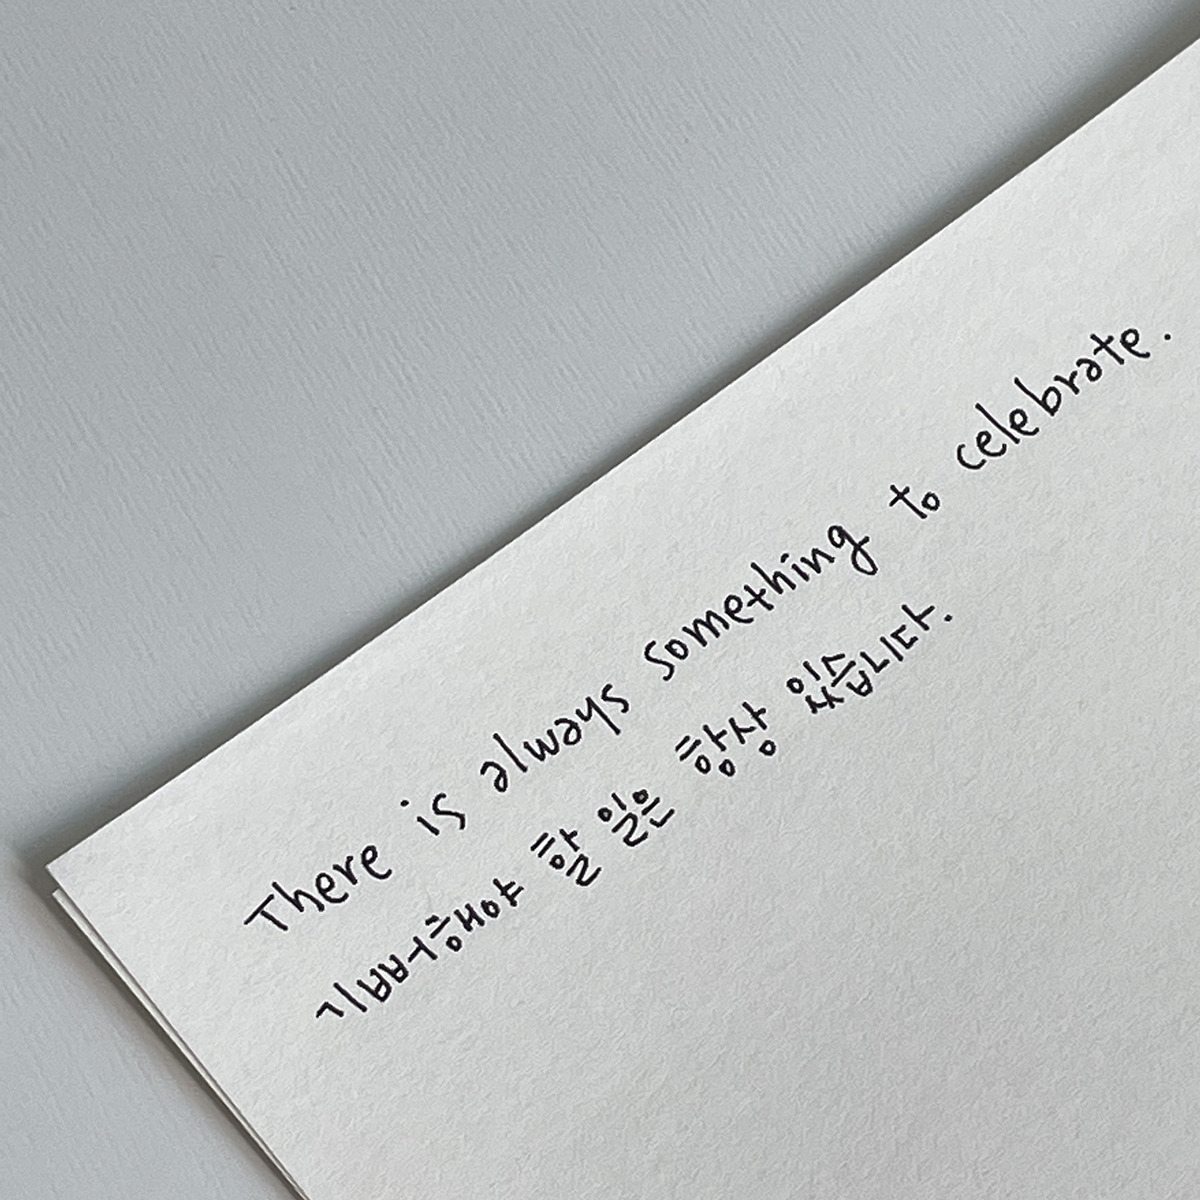 There is always something to celebrate.
기뻐해야 할 일은 항상 있습니다.